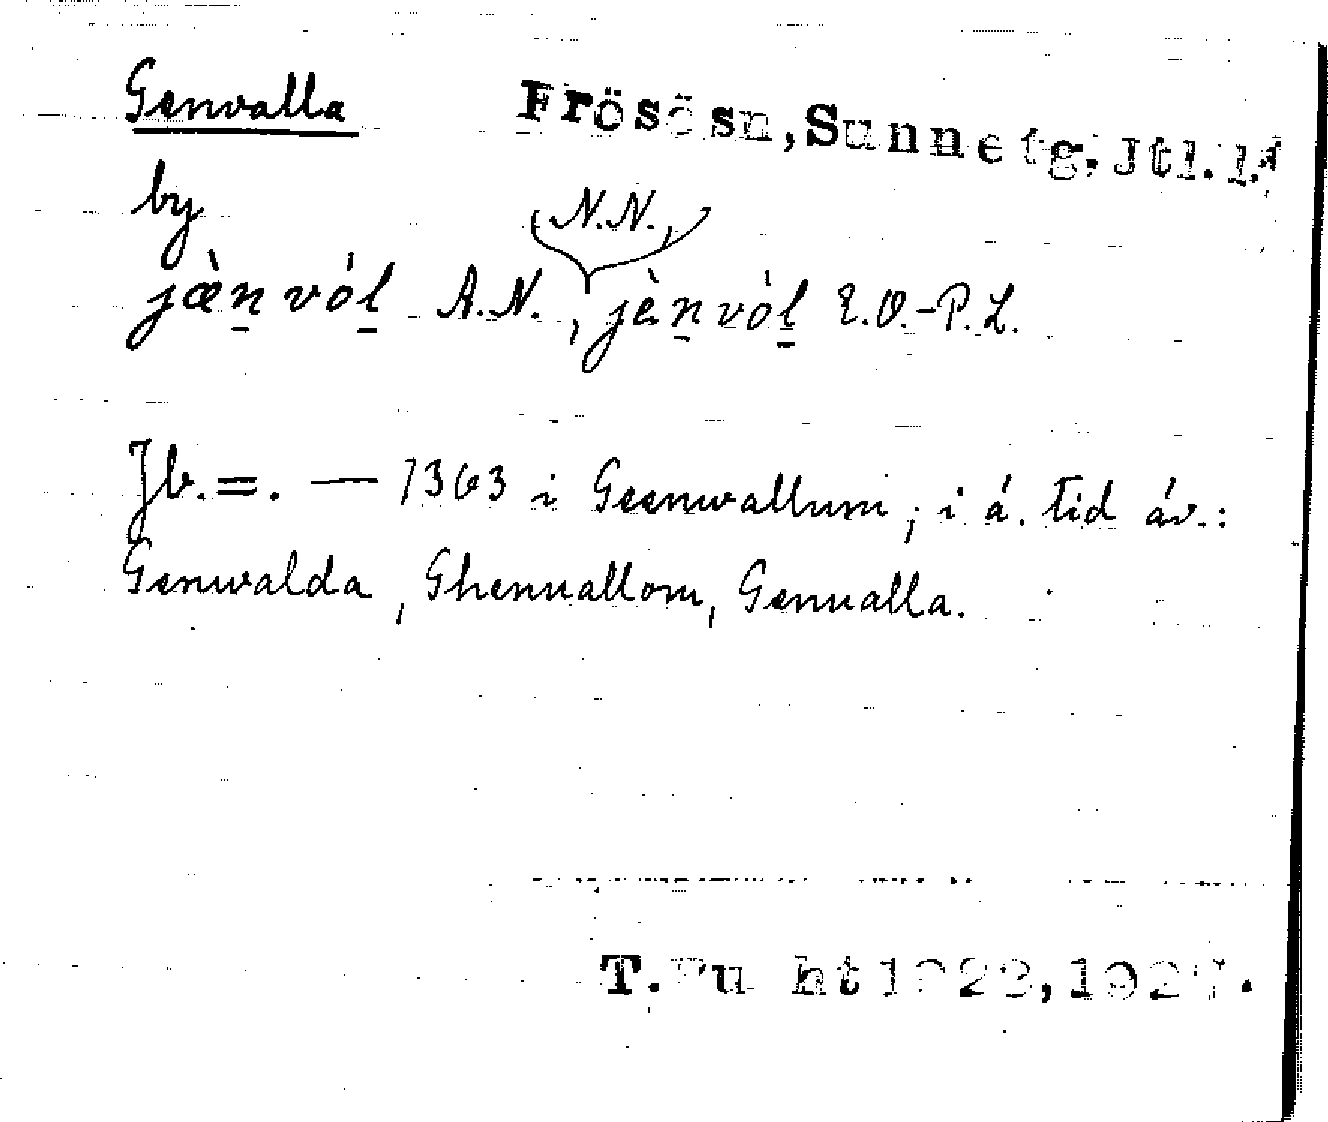 Genvalla Frösösn, Sunnetg, Jtl. l.
by
N.N.,
jæ̀n̠ vól̠ A.N., jèn̠ vól̠ E.O.-P.L.
Jb. =. — 1363 i Geenwallum, i á. tid áv.:
Genwalda, Ghenuallom, Genualla.
T. ht 1922, 192 .